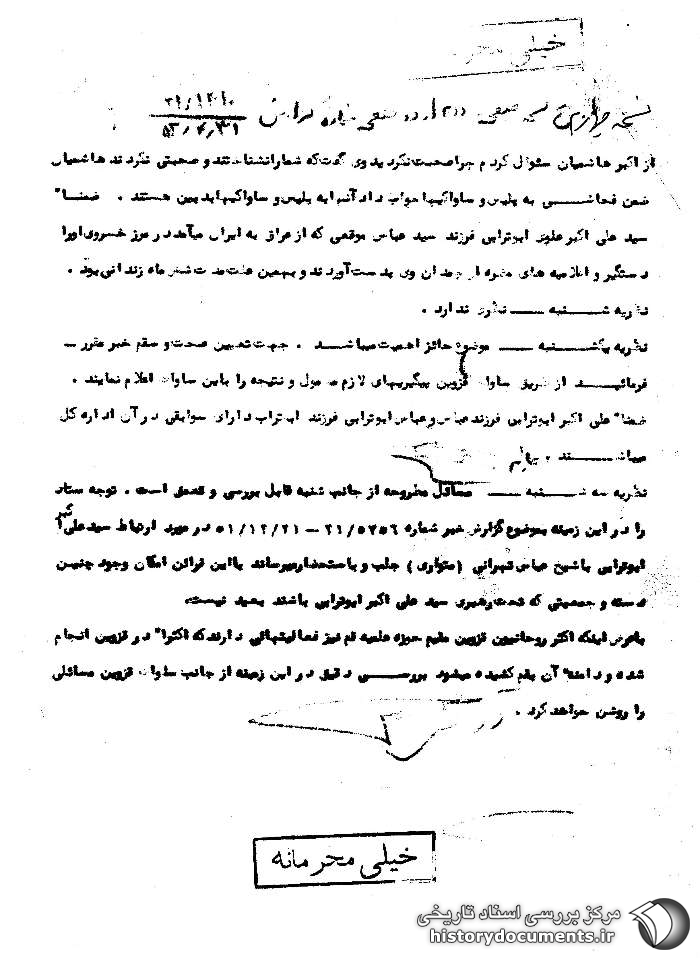 خیلی محرمانه
۲۱/۱۴۱۰
۵۳/۴/۳۱
از اکبر هاشمیان سئوال کردم چرا صحبت نکردید وی گفت که شما را نشناختند و صحبتی نکردند هاشمیان
ضمن فحاشی به پلیس و ساواکیها جواب داد آنها به پلیس و ساواکیها بدبین هستند . ضمنا"
سید علی اکبر علوی ابوترابی فرزند سید عباس موقعی که از عراق به ایران میآمد در مرز خسروی اورا
دستگیر و اعلامیه های مضره از چمدان وی بدست آوردند و بهمین علت مدت شش ماه زندانی بود .
نظریه شنبه ــ نظری ندارد .
نظریه یکشنبه ــ موضوع حائز اهمیت میباشد . جهت تعیین صحت و سقم خبر مقرر ــ
فرمائید از طریق ساواک قزوین پیگیریهای لازم معمول و نتیجه را باین ساواک اعلام نمایند .
ضمنا" علی اکبر ابوترابی فرزند عباس و عباس ابوترابی فرزند ابوتراب دارای سوابقی در آن اداره کل
میباشند .
نظریه سه شنبه ــ مسائل مطروحه از جانب شنبه قابل بررسی و تعمق است . توجه ستاد
را در این زمینه بموضوع گزارش خبر شماره ۲۱/۵۲۵۶ – ۵۱/۱۲/۲۱ در مورد ارتباط سید علی اکبر
ابوترابی با شیخ عباس تهرانی (متواری) جلب و باستحضار میرساند با این قرائن امکان وجود چنین
دسته و جمعیتی که تحت رهبری سید علی اکبر ابوترابی باشند بعید نیست.
باعرض اینکه اکثر روحانیون قزوین مقیم حوزه علمیه قم نیز فعالیتهائی دارند که اکثرا" در قزوین انجام
شده و دامنه آن بقم کشیده میشود بررسی دقیق در این زمینه از جانب ساواک قزوین مسائلی
را روشن خواهد کرد .
خیلی محرمانه
مرکز بررسی اسناد تاریخی
historydocuments.ir